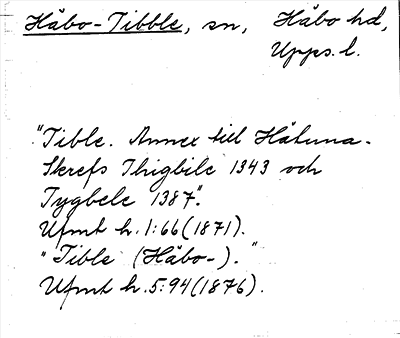 Håbo-Tibble, sn, Håbo hd,
Upps. l.
"Tible. Annex till Håtuna.
Skrefs Thigbile 1343 och
Tygbele 1387".
Ufmt h. 1:66 (1871).
"Tible (Håbo-)."
Ufmt h. 5:94 (1876).